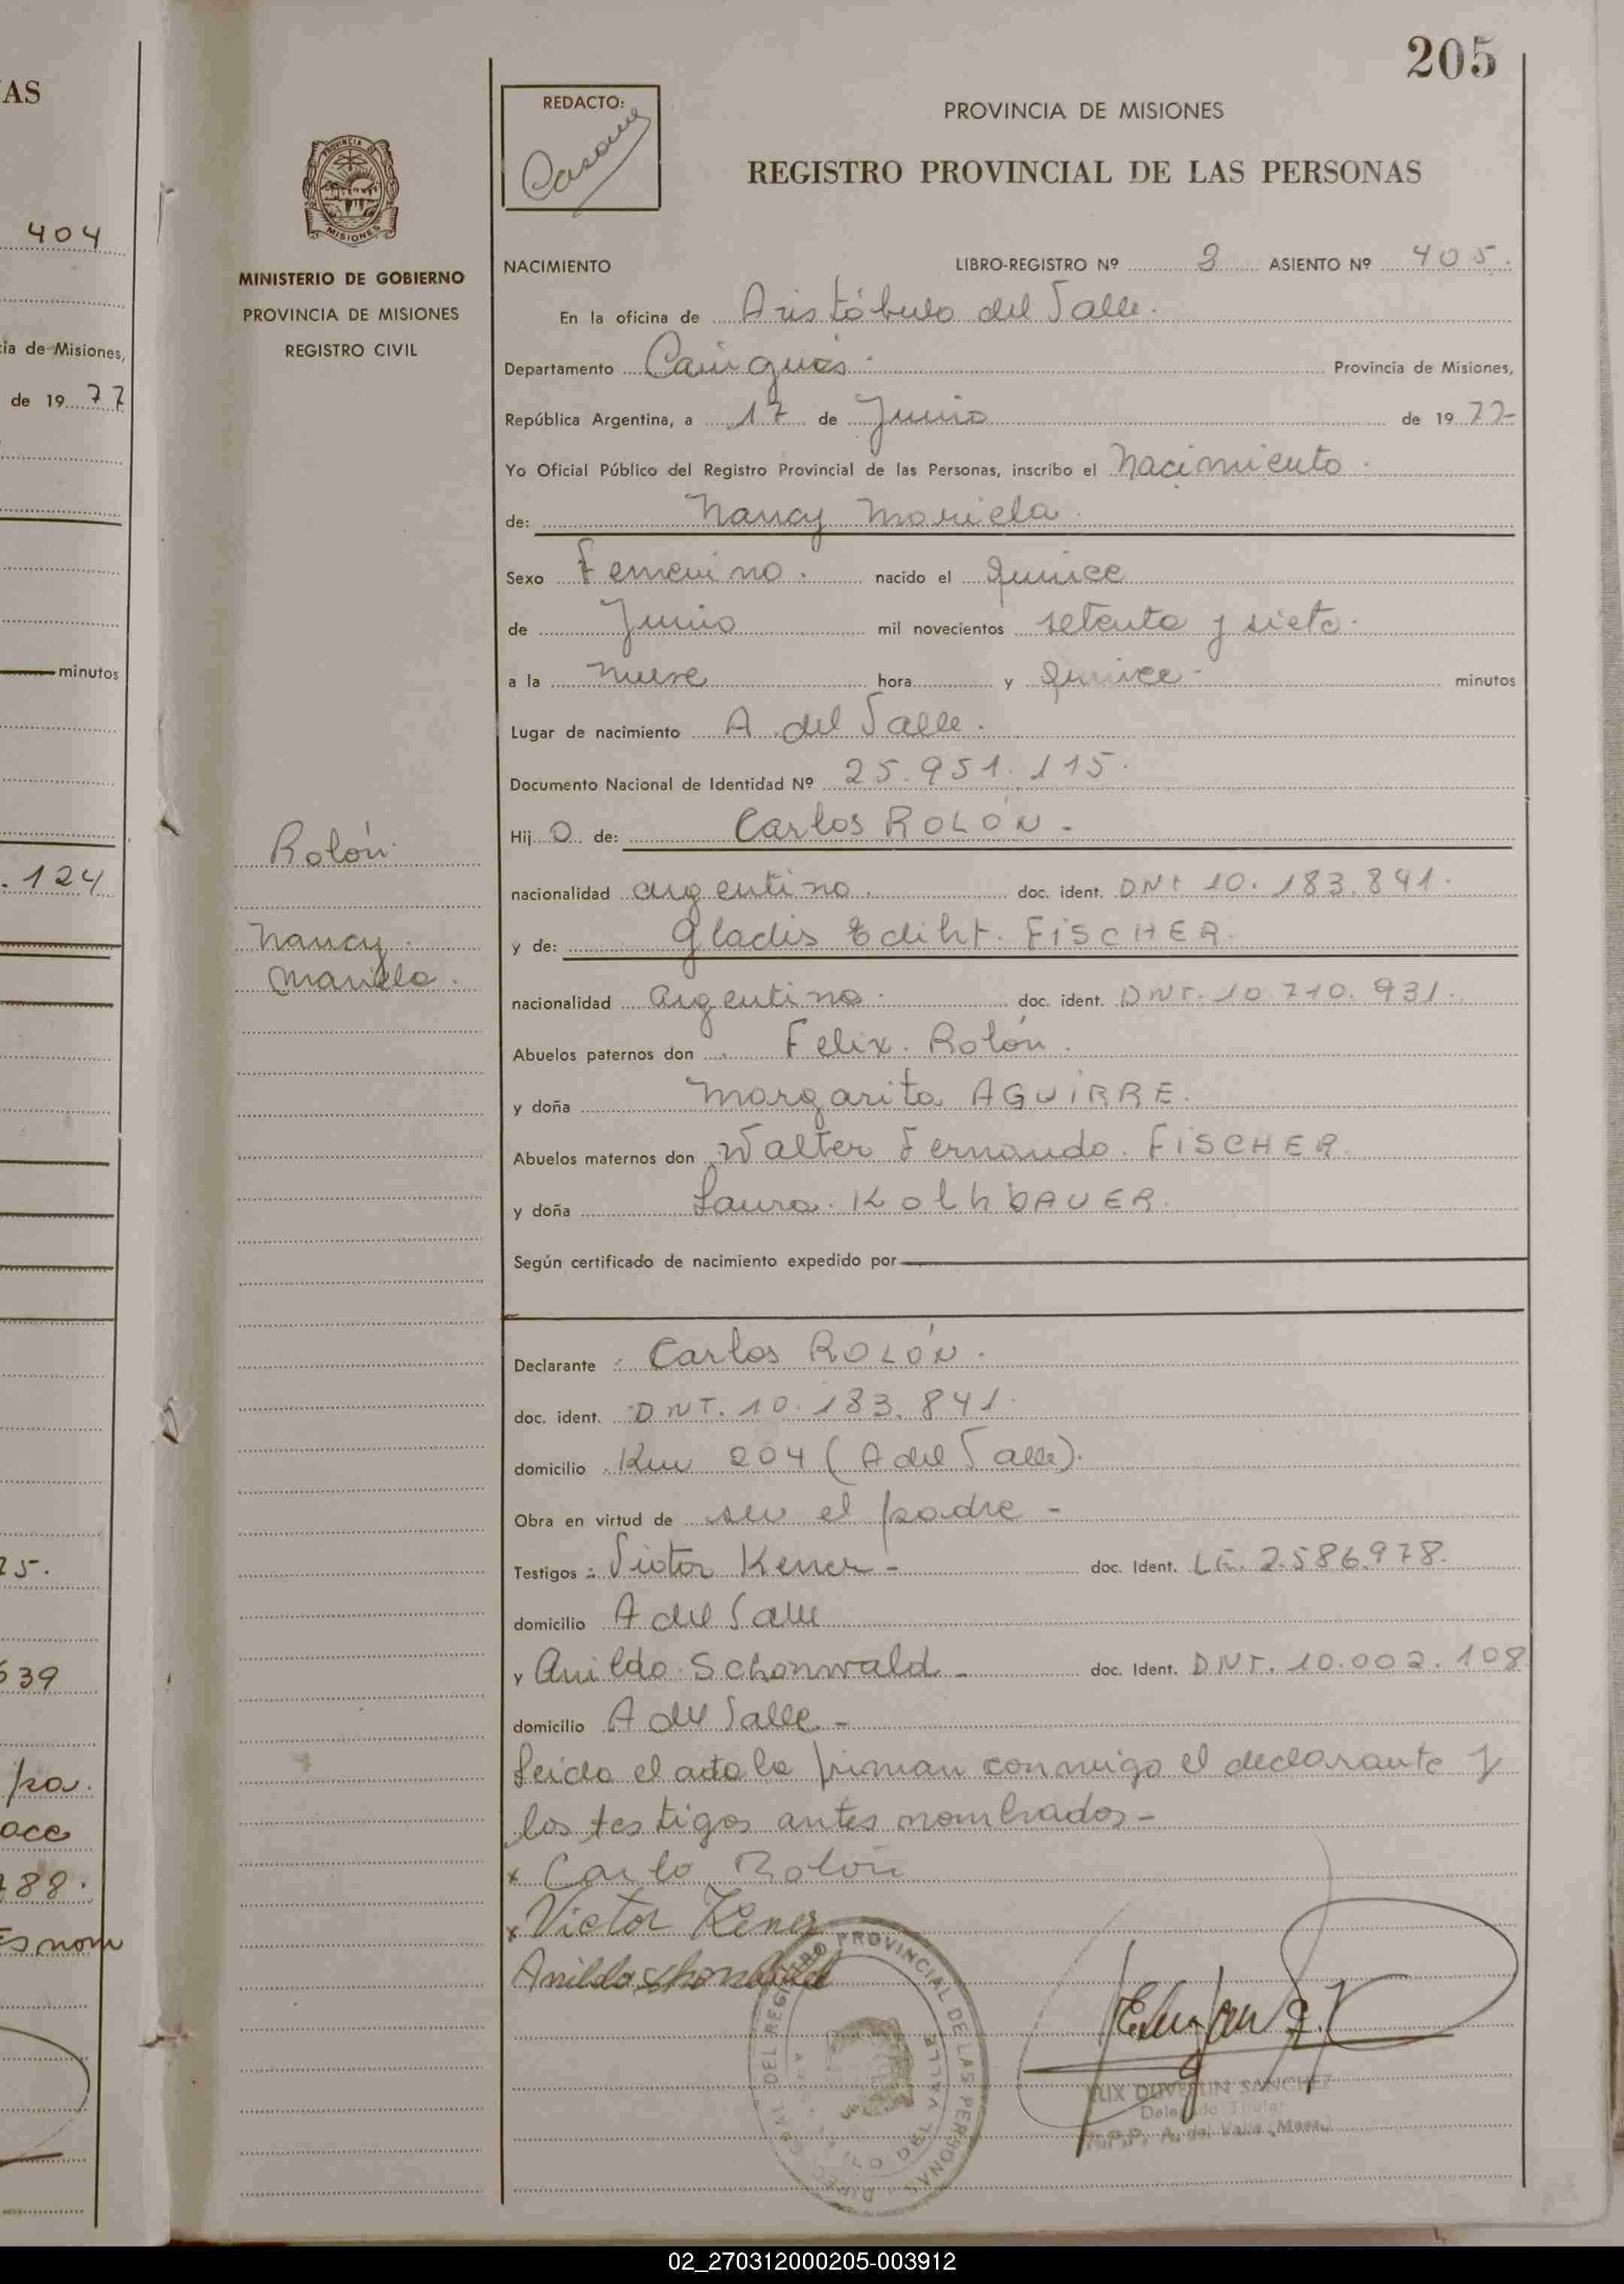 205
AS
404
ia de Misiones,
de 19 77
minutos
. 124
25.
639
pa.
oce
188.
Es nom
MINISTERIO DE GOBIERNO
PROVINCIA DE MISIONES
REGISTRO CIVIL
Rolón
Nancy
Mariela.
REDACTO:
PROVINCIA DE MISIONES
REGISTRO PROVINCIAL DE LAS PERSONAS
NACIMIENTO LIBRO-REGISTRO Nº 3 ASIENTO Nº 405.
En la oficina de Aristóbulo del Valle.
Departamento Cainguás. Provincia de Misiones,
República Argentina, a 17 de Junio de 1977-
Yo Oficial Público del Registro Provincial de las Personas, inscribo el Nacimiento.
de: Nancy Mariela.
Sexo Femenino. nacido el quince
de Junio mil novecientos setenta y siete.
a la nueve hora y quince - minutos
Lugar de nacimiento A del Valle.
Documento Nacional de Identidad Nº 25.951.115.
Hij a de: Carlos ROLÓN -
nacionalidad argentina. doc. ident. DNI 10.183.841.
y de: Gladis Ediht. FISCHER.
nacionalidad argentina. doc. ident. DNI. 10.710.931.
Abuelos paternos don Felix. Rolón.
y doña Margarita AGUIRRE.
Abuelos maternos don Walter Fernando. FISCHER
y doña Laura. KolhbAUER.
Según certificado de nacimiento expedido por
Declarante Carlos ROLÓN.
doc. ident. DNI. 10.183.841.
domicilio Km 204 (A del Valle).
Obra en virtud de ser el padre -
Testigos: Victor Kener - doc. Ident. LE. 2.586.978.
domicilio A del Valle
y Anildo Schonwald - doc. Ident. DNI. 10.002.108
domicilio A del Valle -
Leida el acta la firman conmigo el declarante y
los testigos antes nombrados -
x Carlo Rolon
x Victor Kener
Anildo Schonwald
DEL REGISTRO PROVINCIAL DE LAS PERSONAS
DEL VALLE
SANCHEZ
Delegado Titular
A. del Valle (Mnes.)
02_270312000205-003912